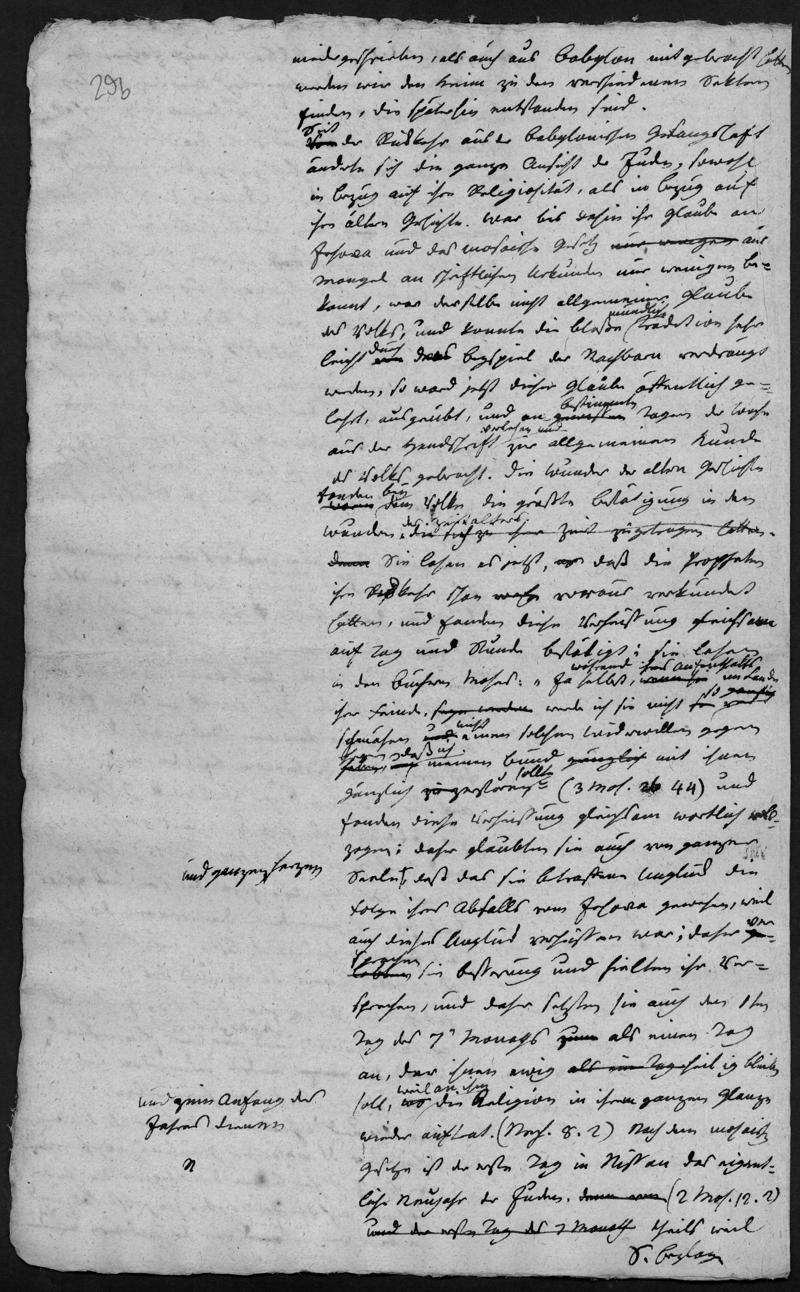 296
niedergeschrieben, als auch aus Babylon mitgebracht hatten
werden wir den Keim zu den verschiedenen Sekten
finden, die späterhin entstanden sind.
Seit
der Rückkehr aus der babylonischen Gefangschaft
änderte sich die ganze Ansicht der Juden, sowohl
in bezug auf ihre Religiosität, als in bezug auf
ihre ältere Geschichte. War bis dahin ihr Glaube an
Jehova und das mosaische Gesetz nur wenigen aus
Mangel an schriftlichen Urkunden nur wenigen be-
kannt, war derselbe nicht allgemeiner Glaube
des Volks, und konnte die bloße mündliche Tradition sehr
leicht durch das Beyspiel der Nachbarn verdrängt
werden, so ward jetzt dieser Glaube öffentlich ge-
lehrt, ausgeübt, und an bestimmten Tagen der Woche
aus der Handschrift verlesen und zur allgemeinen Kunde
des Volks gebracht. Die Wunder der alten Geschichte
fanden bey dem Volke die größte Bestätigung in den
Wundern des Zeitalters, die sich zu ihrer Zeit zugetragen hatten.
denn Sie lasen es jetzt, daß die Propheten
ihre Rückkehr schon voraus verkündet
hatten, und fanden diese Verheissung gleichsam
auf Tag und Stunde bestätigt; sie lasen
in den Büchern Moses: "Ja selbst, während ihres Aufenthalts im Lande
ihrer Feinde, werde ich sie nicht so
schmähen und nicht einen solchen Widerwillen gegen
daß ich meinen Bund gänzlich mit ihnen
gänzlich zerstören sollte (3 Mos. 26 44) und
fanden diese Verheissung gleichsam wörtlich voll-
zogen; daher glaubten sie auch von ganzer
Seele und ganzem Herzen, daß das sie betroffene Unglück die
Folge ihres Abfalls vom Jehova gewesen, weil
auch dieses Unglück verheissen war; daher ver-
sprachen sie Besserung und hielten ihr Ver-
sprechen, und daher setzten sie auch den 1ten
Tag des 7t Monaths zum als einen Tag
an, der ihnen ewig als ein Tag heilig bleiben
soll, weil an ihm die Religion in ihrem ganzen Glanze
wieder auftrat. (Nech. 8. 2) Nach dem mosaischen
Gesetze ist der erste Tag in Nissan das eigent-
liche Neujahr der Juden. (2 Mos. 12. 2)
und der erste Tag des 7 Monath theils weil
S. Beylage
und zum Anfang des
Jahres dienen